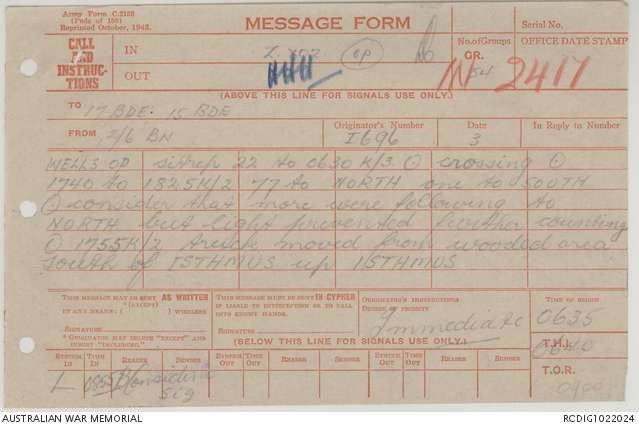 Army Form C.2128
(Pads of 100)
Reprinted October, 1943.
MESSAGE FORM
Serial No.
CALL
AND
INSTRUC-
TIONS
IN
OUT
No. of Groups
GR.
54
OFFICE DATE STAMP
IN 2417
(ABOVE THIS LINE FOR SIGNALS USE ONLY.)
TO 17 BDE. 15 BDE
FROM 2/6 BN
Originator's Number
I696
Date
3
In Reply to Number
WELLS OP sitrep 22 to 0630 K/3 ⊙ crossing ⊙
1740 to 1825K/2 77 to NORTH one to SOUTH
⊙ consider that more were following to
NORTH but light prevented further counting
⊙ 1755K/2 truck moved from wooded area
south of ISTHMUS up ISTHMUS
THIS MESSAGE MAY BE SENT AS WRITTEN
*(EXCEPT)
BY ANY MEANS ( ) WIRELESS
SIGNATURE
* ORIGINATOR MAY DELETE "EXCEPT" AND
INSERT "INCLUDING."
THIS MESSAGE MUST BE SENT IN CYPHER
IF LIABLE TO INTERCEPTION OR TO FALL
INTO ENEMY HANDS.
SIGNATURE
ORIGINATOR'S INSTRUCTIONS
DEGREE OF PRIORITY
Immediate
TIME OF ORIGIN
0635
(BELOW THIS LINE FOR SIGNALS USE ONLY.)
T.H.I.
SYSTEM IN
TIME IN
READER
SENDER
SYSTEM OUT
TIME OUT
READER
SENDER
SYSTEM OUT
TIME OUT
READER
SENDER
T.O.R.
L 0855 Considine
Sig
0900
AUSTRALIAN WAR MEMORIAL
RCDIG1022024